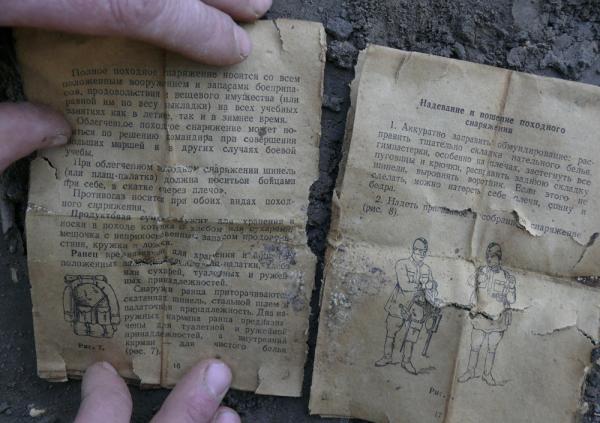 Полное походное снаряжение носится со всем
положенным вооружением и запасами боеприпа-
сов, продовольствия и вещевого имущества (или
равной им по весу выкладки) на всех учебных
занятиях как в летнее, так и в зимнее время.
Облегченное походное снаряжение может но-
ситься по решению командира при совершении
больших маршей и в других случаях боевой
учебы.
При облегченном походном снаряжении шинель
(или плащ-палатка) должна носиться бойцами
при себе, в скатке «через плечо».
Противогаз носится при обоих видах поход-
ного снаряжения.
Продуктовая сумка служит для хранения и
носки в походе котелка с хлебом или сухарями,
мешочка с неприкосновенным запасом продоволь-
ствия, кружки и ложки.
Ранец для хранения и
положенных палатки, хлеба
или сухарей, туалетных и ружей-
ных принадлежностей.
Снаружи ранца приторачиваются
скатанная шинель, стальной шлем и
палаточная принадлежность. Два на-
ружных кармана ранца предназна-
чены для туалетной и ружейной
принадлежностей, а внутренний
карман для чистого белья
(рис. 7).
Рис. 7.
16
Надевание и ношение походного
снаряжения
1. Аккуратно заправить обмундирование: рас-
править тщательно складки нательного белья,
гимнастерки, особенно на плечах, застегнуть все
пуговицы и крючки, расправить заднюю складку
шинели, выровнять воротник. Если этого не
сделать, можно натереть себе плечи, спину и
бедра.
2. Надеть собранное снаряжение
(рис. 8).
Рис.
17